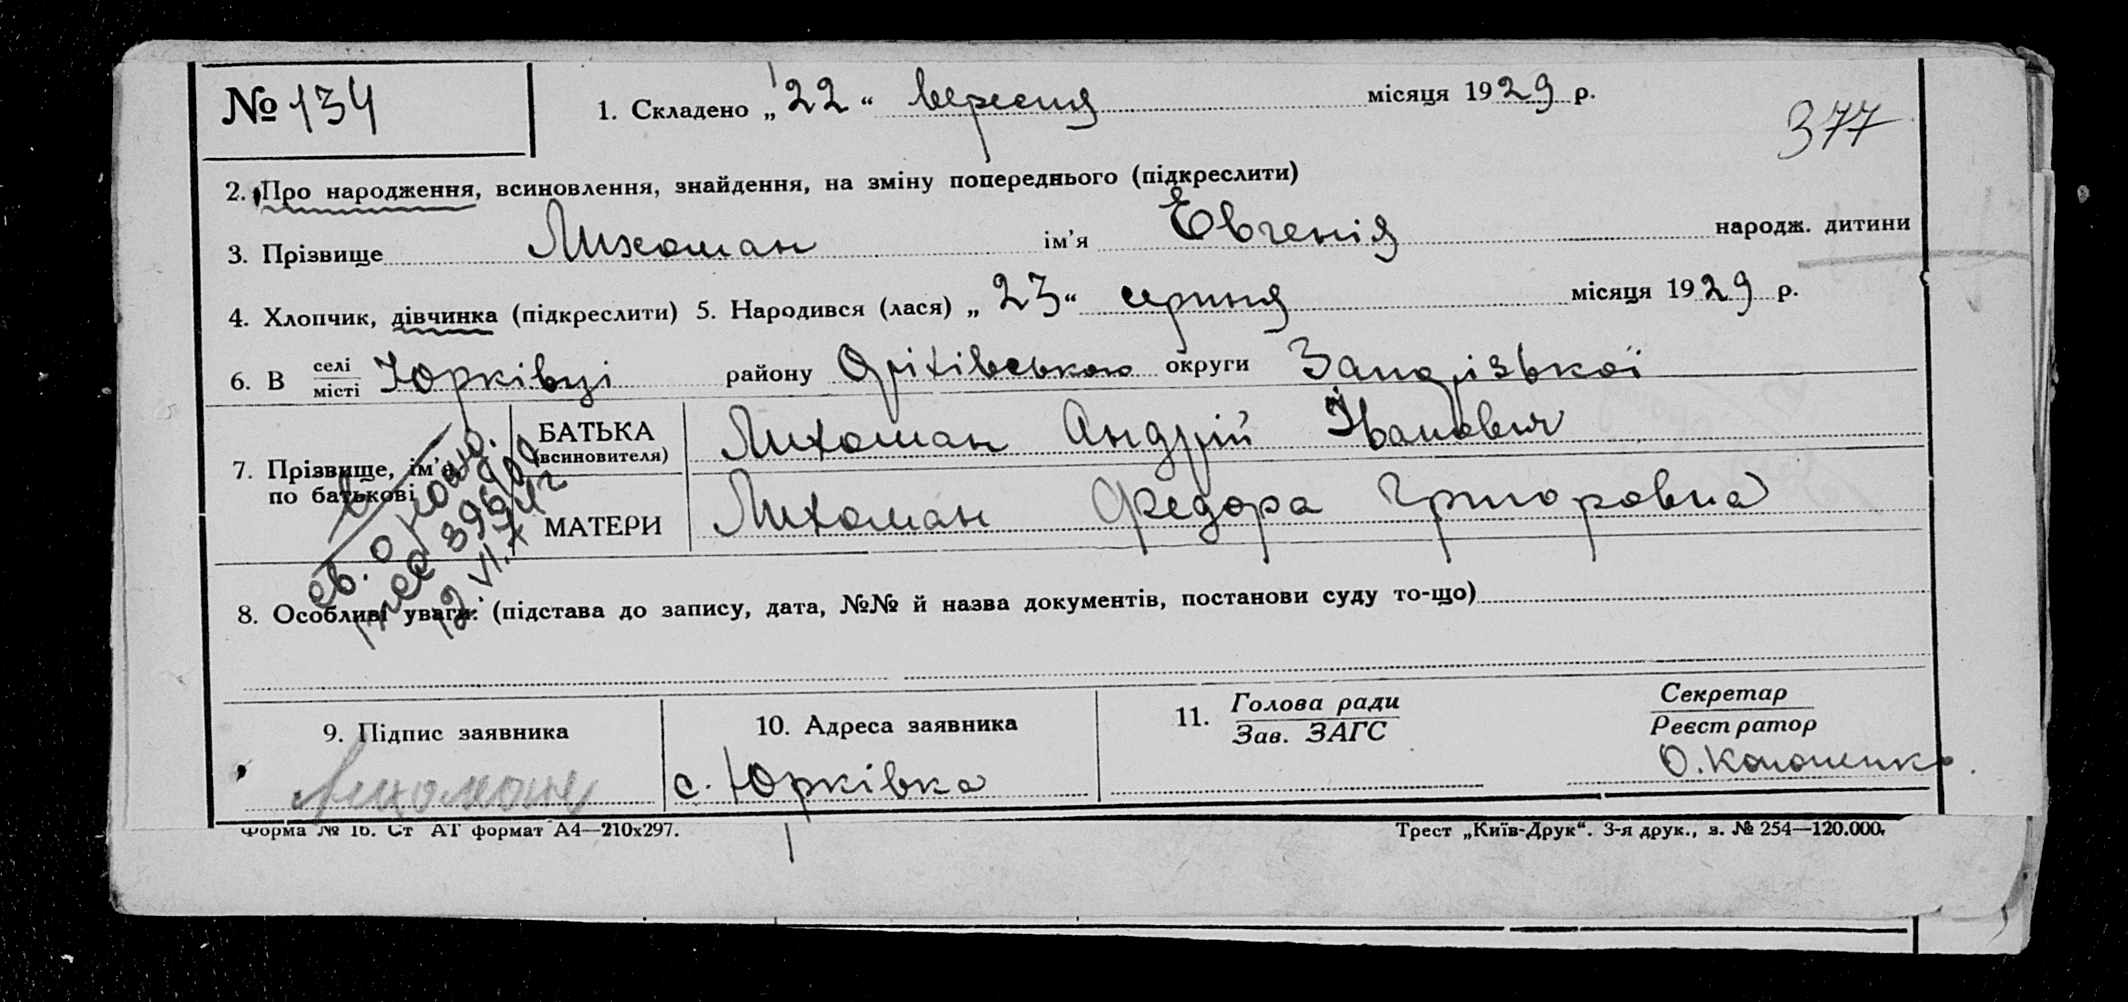 № 134
1. Складено „ 22 “ вересня місяця 1929 р.
377
2. Про народження, всиновлення, знайдення, на зміну попереднього (підкреслити)
3. Прізвище Лихоман ім'я Євгенія народж. дитини
4. Хлопчик, дівчинка (підкреслити) 5. Народився (лася) „ 23 “ серпня місяця 1929 р.
6. В селі місті Юрківці району Оріхівського округи Запорізької
7. Прізвище, ім'я, по батькові
БАТЬКА (всиновителя) Лихоман Андрій Іванович
МАТЕРИ Лихоман Федора Григоровна
8. Особливі уваги: (підстава до запису, дата, №№ й назва документів, постанови суду то-що)
9. Підпис заявника
Лихоман
10. Адреса заявника
с. Юрківка
11. Голова ради
Зав. ЗАГС
Секретар
Реєстратор
О. Кононенко
Форма № 16. Ст АТ формат А4—210х297.
Трест „Київ-Друк“. 3-я друк., з. № 254—120.000.